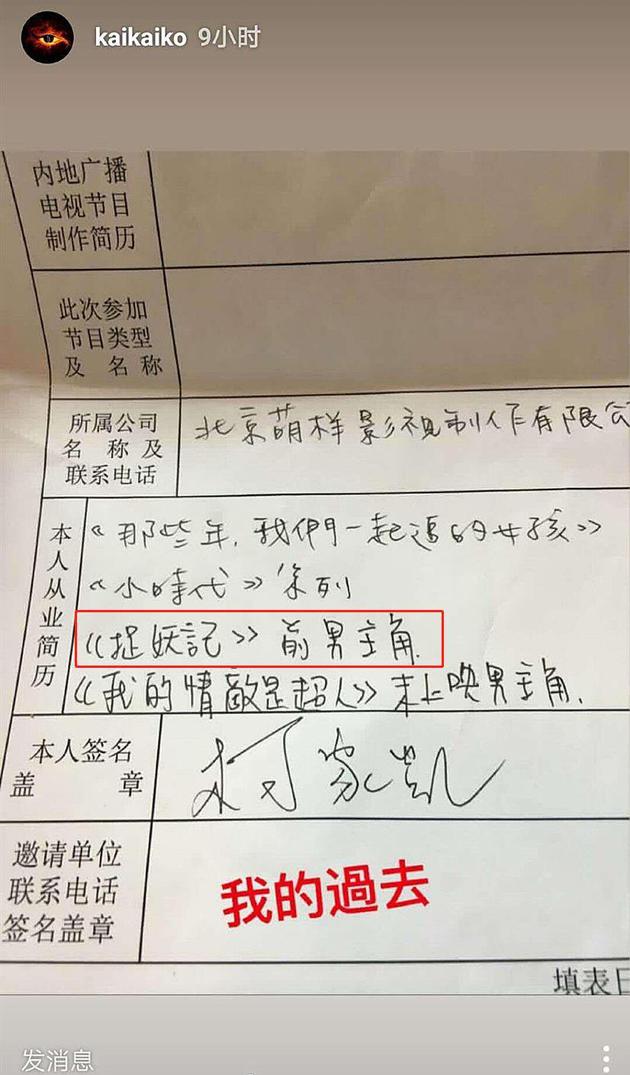 kaikaiko 9小时
内地广播
电视节目
制作简历
此次参加
节目类型
及 名 称
所属公司
名 称 及
联系电话
北京萌样影视制作有限公
本人从业简历
《那些年,我們一起追的女孩》
《小時代》系列
《捉妖記》前男主角.
《我的情敵是超人》未上映男主角.
本人签名
盖 章
柯家凱
邀请单位
联系电话
签名盖章
我的過去
填表日
发消息